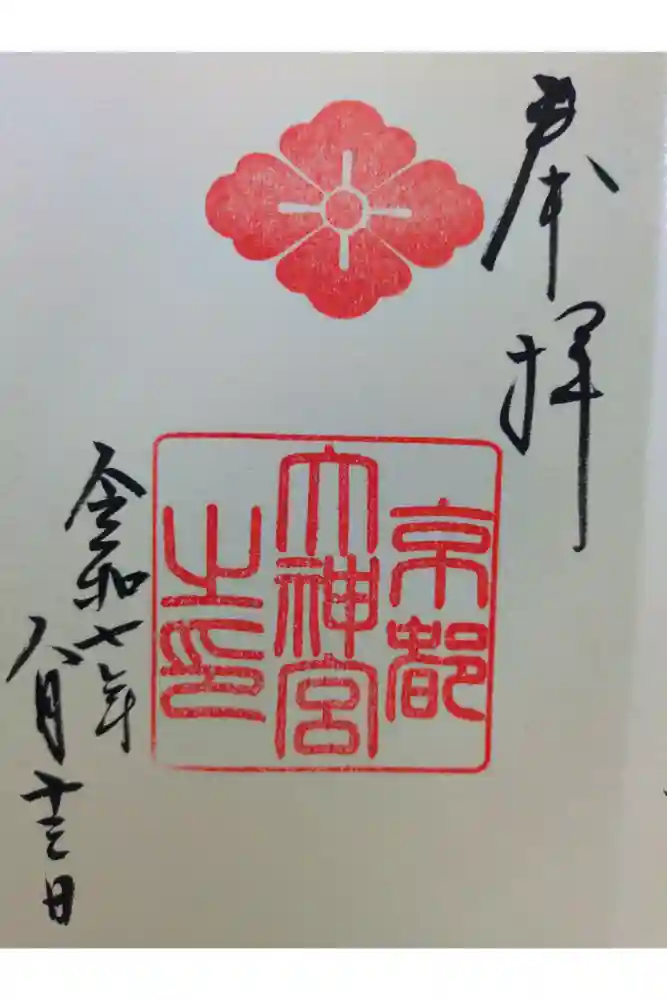 奉拝
京都
大神宮
之印
令和七年
八月十三日